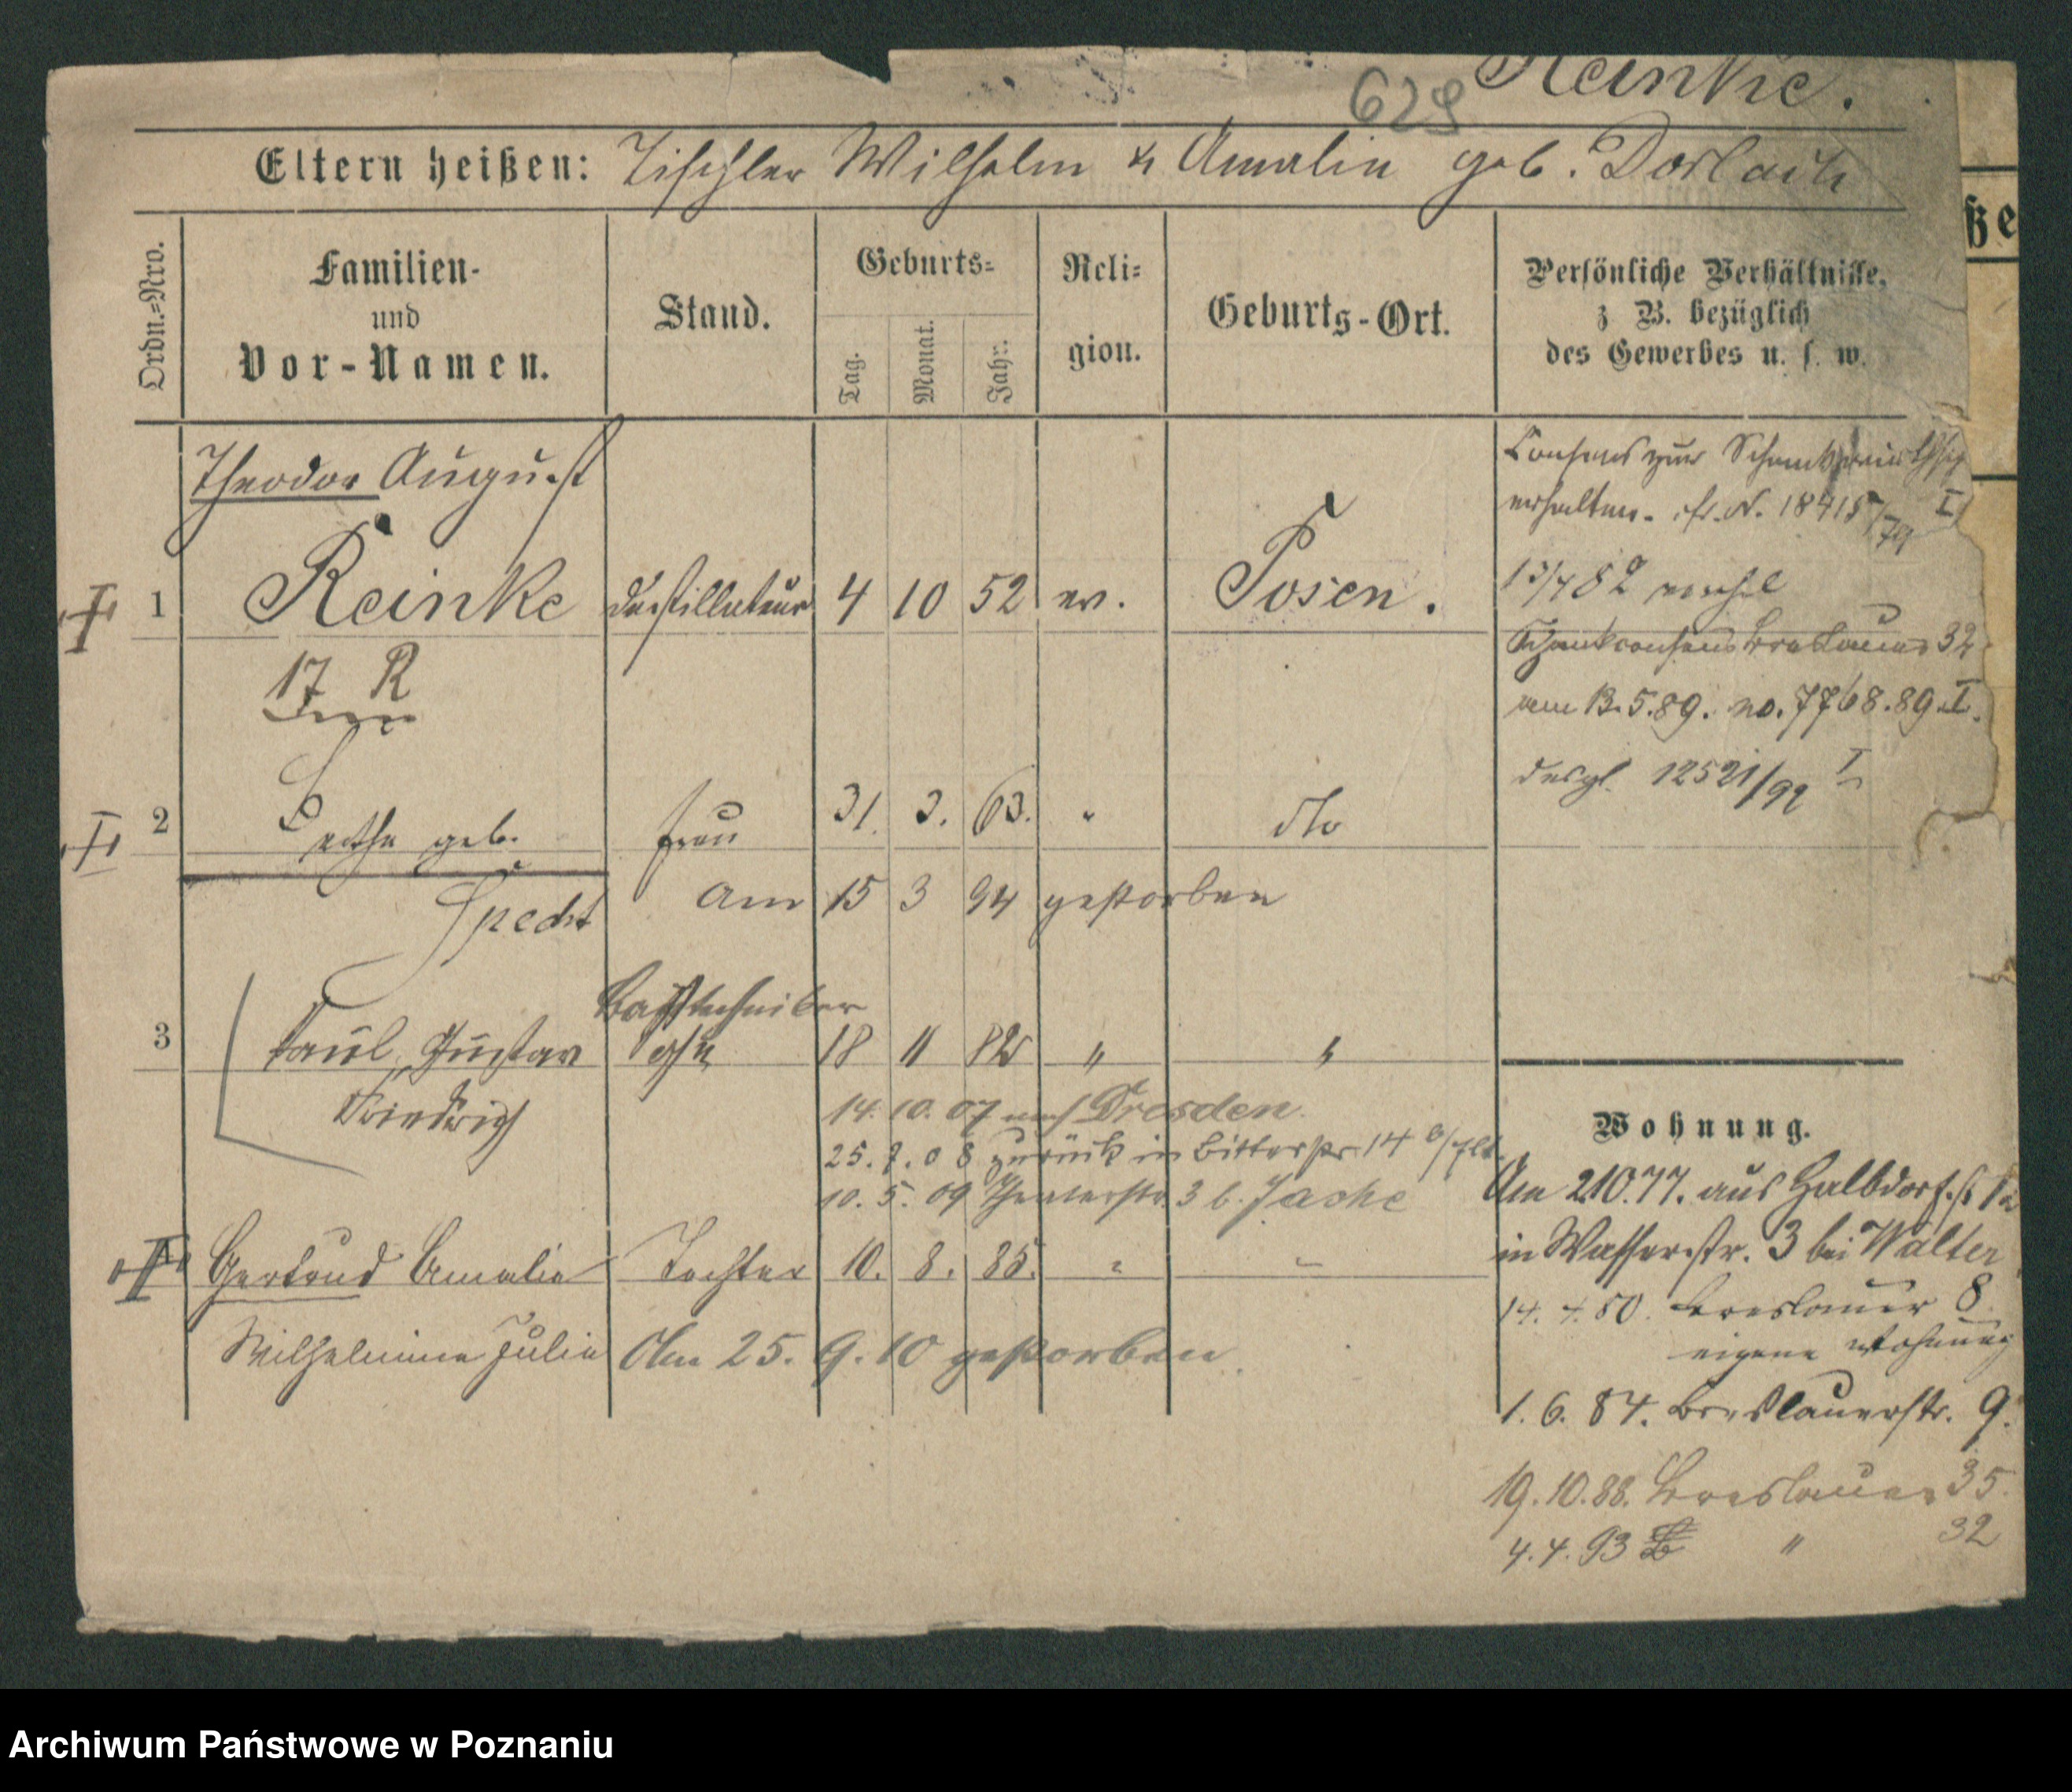 629 Reinke.
Eltern heißen: Tischler Wilhelm & Amalie geb. Dorlach
Ordn.=Nro.
Familien-
und
Vor-Namen.
Stand.
Geburts=
Tag.
Monat.
Jahr.
Reli=
gion.
Geburts-Ort.
Persönliche Verhältnisse,
z B. bezüglich
des Gewerbes u. s. w.
ße
Theodor August
1 Reinke Destillateur 4 10 52 ev. Posen.
17 R
Consens zur Schankwirthsch
erhalten. cfr. N. 18415/79 I
13/7 82
Schankconsens Breslauer 32
am 13.5.89. no. 7768.89.I.
desgl. 12521/92 I
2 Berthe geb. Frau 31. 3. 63. " dto
Specht am 15 3 94 gestorben
Bautechniker
3 Paul, Gustav Sohn 18 11 82 " "
Friedrich
14. 10. 07 nach Dresden.
25. 7. 08 zurück in Bitterstr. 14
10. 5. 09 Theaterstr. 3 b. Jache
Gertrud Amalie Tochter 10. 8. 85. " "
Wilhelmine Julie Am 25. 9. 10 gestorben.
Wohnung.
Am 2.10.77. aus Halbdorfst.
in Wasserstr. 3 bei Walter
14. 4. 80. Breslauer 8
eigene Wohnung
1. 6. 84. Breslauerstr. 9.
19. 10. 88. Breslauer 35.
4. 4. 93 " 32
Archiwum Państwowe w Poznaniu